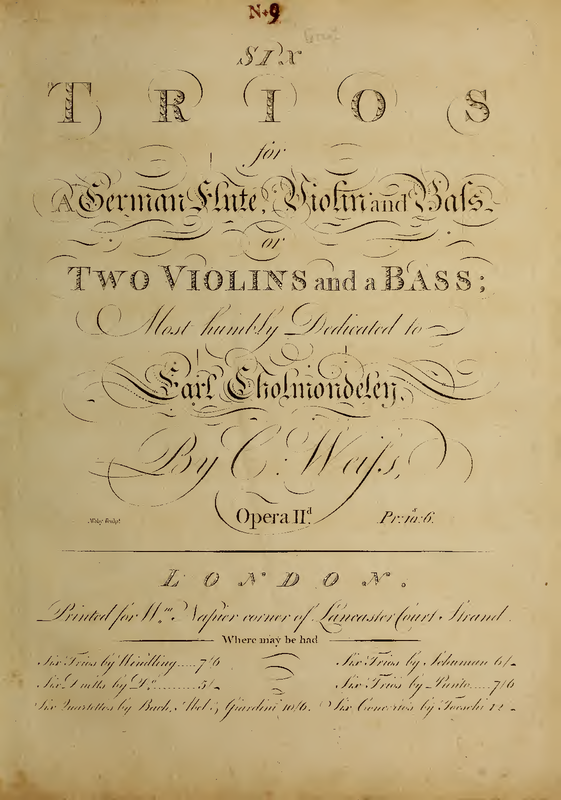 No 9
SIX
TRIOS
for
A German Flute, Violin and Bass
or
TWO VIOLINS and a BASS;
Most humbly Dedicated to
Earl Cholmondeley,
By C. Weiss,
Opera IId. Pr: 10: 6d.
LONDON.
Printed for Wm. Napier corner of Lancaster Court Strand
Where may be had
Six Trios by Wendling.....7/6 Six Trios by Schuman 6/-
Six Duetts by Do..........5/- Six Trios by Punto.....7/6
Six Quartettos by Bach, Abel & Giardini 10/6. Six Concertos by Toeschi